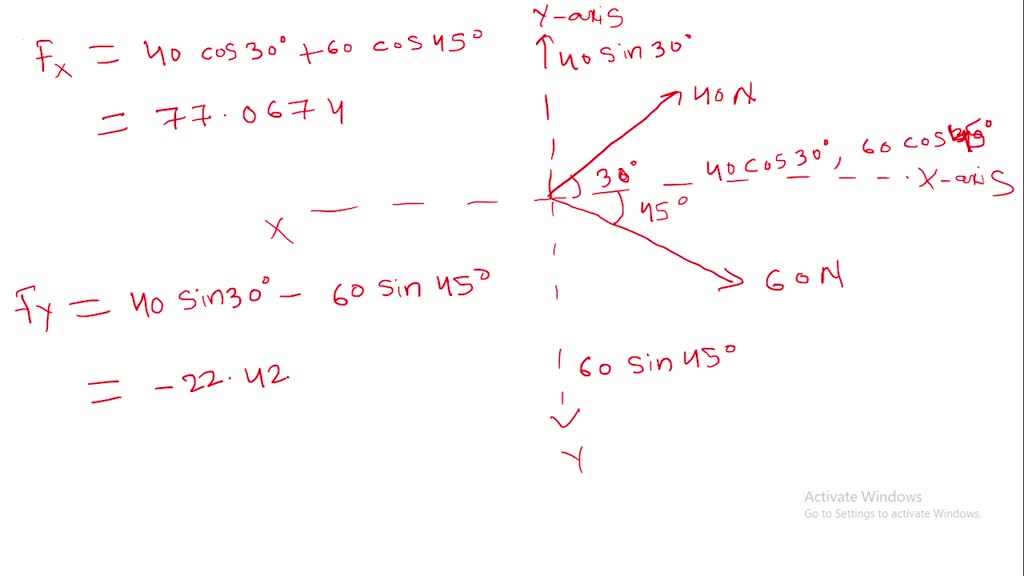 Fx = 40 cos30° + 60 cos45°
= 77.0674
Fy = 40 sin30° - 60 sin45°
= -22.42
Y-axis
40 sin30°
40N
30°
40cos30°, 60 cos45°
X-axis
45°
X
60N
60 sin45°
Y
Activate Windows
Go to Settings to activate Windows.